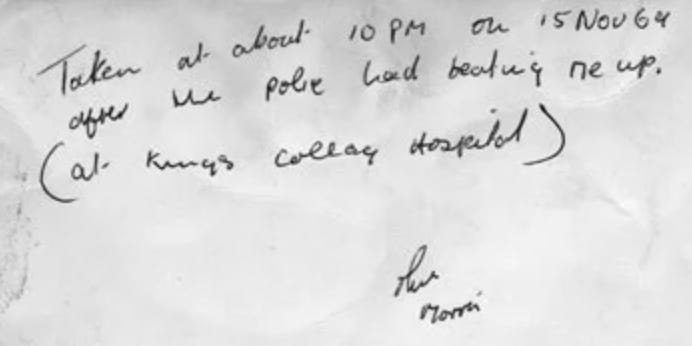 Taken at about 10 PM on 15 Nov 69
after the police had beating me up.
(at Kings Colleag Hospital)
Olive
Morris